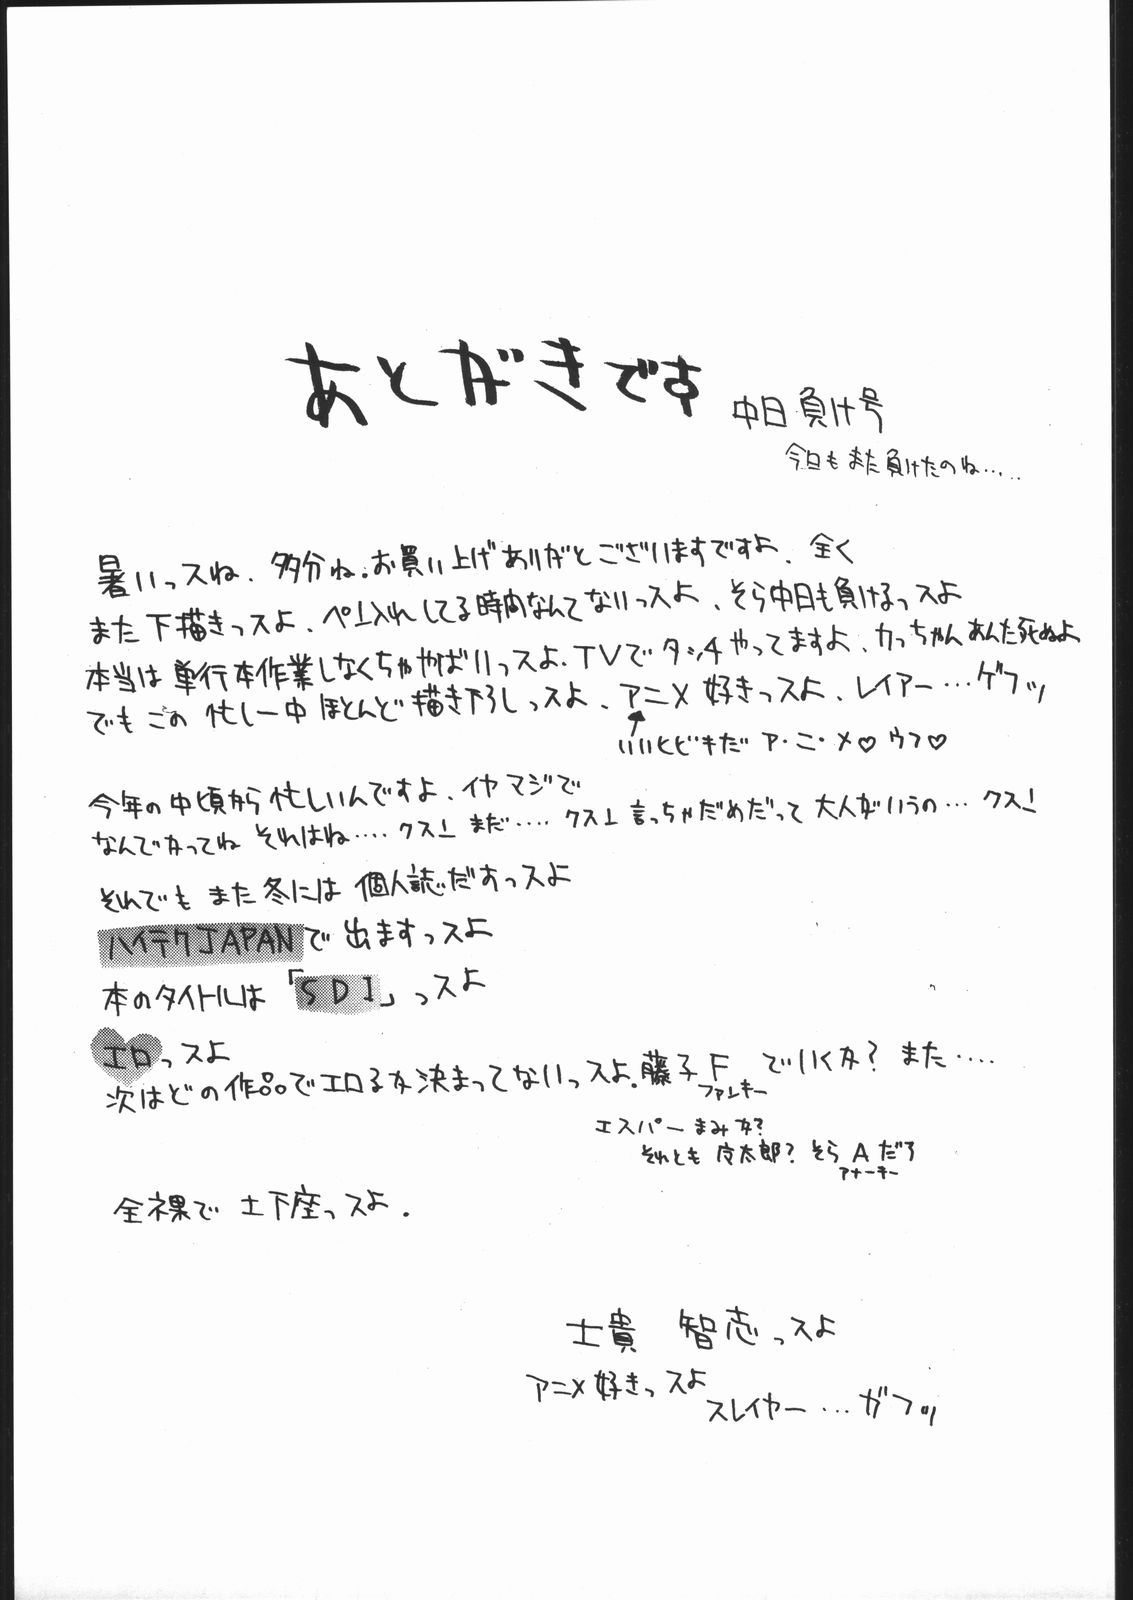 あとがきです
中日負け号
今日もまた負けたのね・・・・・
暑いっスね、多分ね。お買い上げありがとございますですよ、全く
また下描きっスよ、ペン入れしてる時間なんてないっスよ、そら中日も負けるっスよ
本当は単行本作業しなくちゃやばいっスよ。TVでタッチやってますよ、カっちゃんあんた死ぬよ
でもこの忙し一中ほとんど描き下ろしっスよ、アニメ好きっスよ、レイアー…ゲフッ
いいヒビキだ ア・ニ・メ♡ウフ♡
今年の中頃から忙しいんですよ、イヤマジで
なんでかってね それはね・・・・クスン まだ・・・・クスン 言っちゃだめだって大人がいうの…クスン
それでもまた冬には個人誌だすっスよ
ハイテクJAPANで出ますっスよ
本のタイトルは「SDI」っスよ
エロっスよ
次はどの作品でエロるか決まってないっスよ。藤子Fでいくか?また・・・・
ファンキー
エスパーまみか?
それとも 太郎?そらAだろ
アナーキー
全裸で土下座っスよ.
士貴 智志っスよ
アニメ好きっスよ
スレイヤー…ガフッ